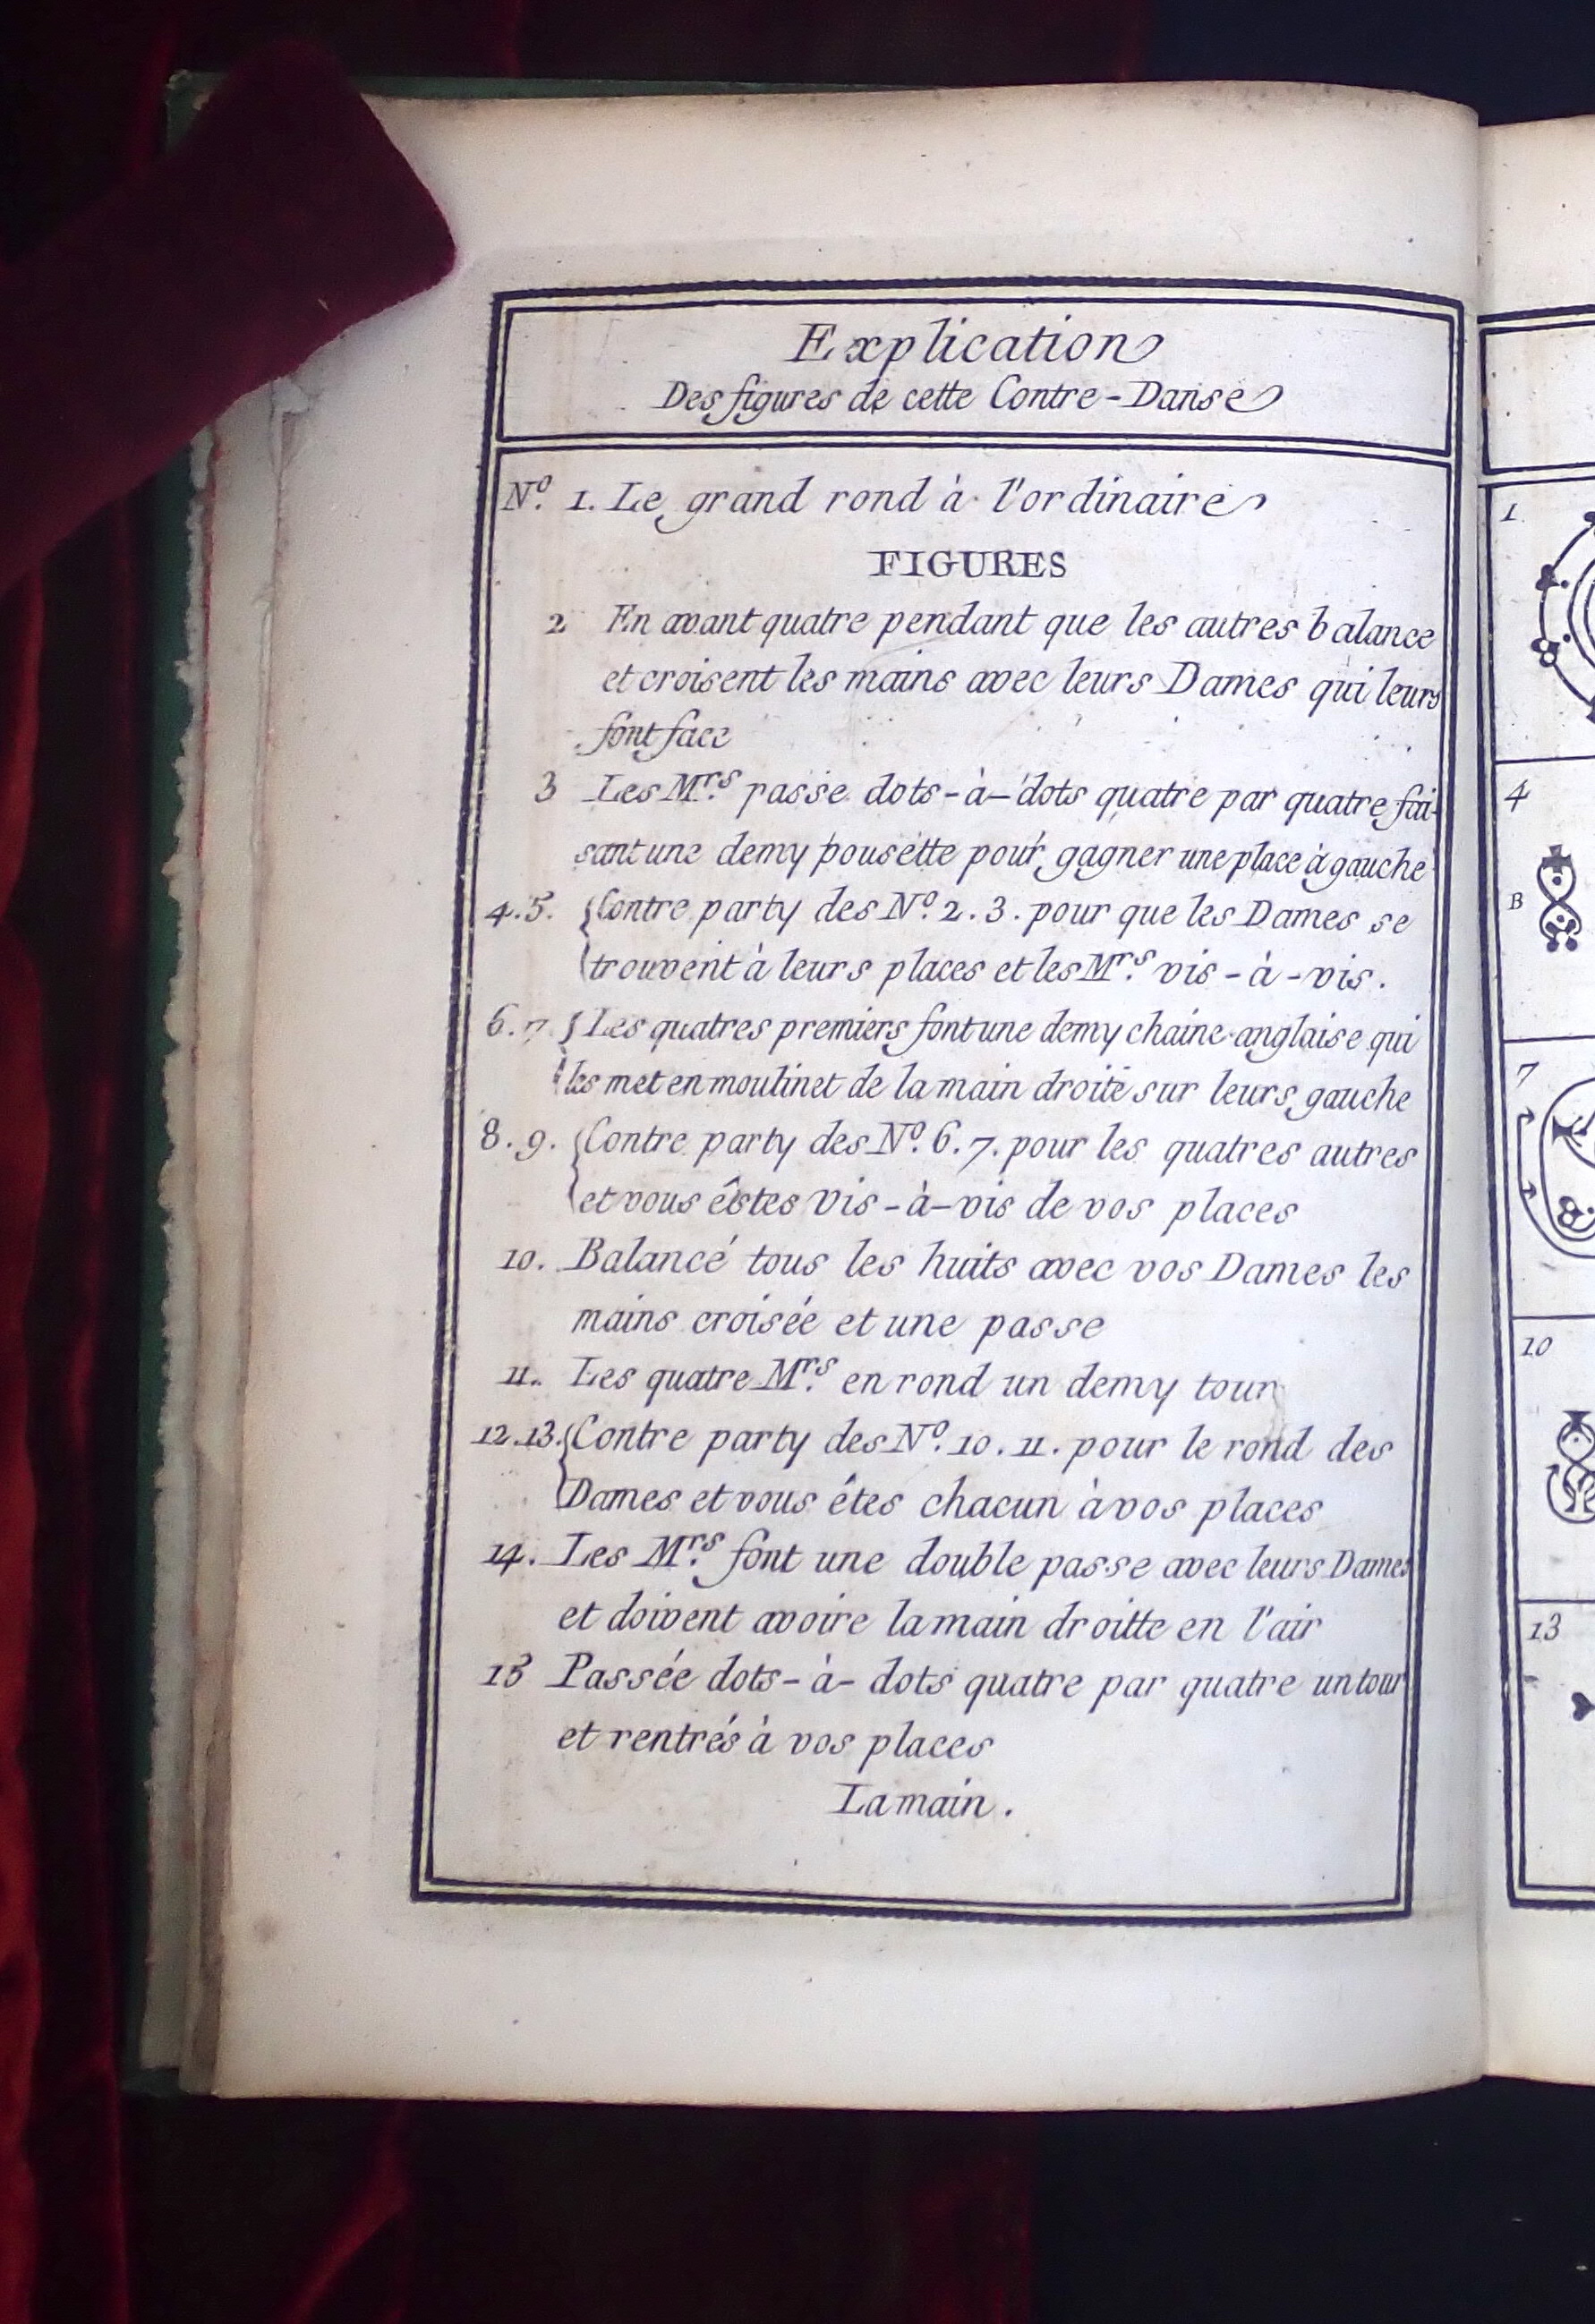 Explication
Des figures de cette Contre-Danse
N.º 1. Le grand rond à l'ordinaire
FIGURES
2 En avant quatre pendant que les autres balance
et croisent les mains avec leurs Dames qui leurs
font face
3 Les M.rs passe dots-à-dots quatre par quatre fai-
sant une demy pousette pour gagner une place à gauche
4.5. { Contre party des N.º 2.3. pour que les Dames se
trouvent à leurs places et les M.rs vis-à-vis.
6.7. { Les quatres premiers font une demy chaine anglaise qui
les met en moulinet de la main droite sur leurs gauche
8.9. { Contre party des N.º 6.7. pour les quatres autres
et vous êstes vis-à-vis de vos places
10. Balancé tous les huits avec vos Dames les
mains croisée et une passe
11. Les quatre M.rs en rond un demy tour
12.13. { Contre party des N.º 10.11. pour le rond des
Dames et vous étes chacun à vos places
14. Les M.rs font une double passe avec leurs Dames
et doivent avoire la main droitte en l'air
15 Passée dots-à-dots quatre par quatre un tour
et rentrés à vos places
La main.
1.
4
B
7
10
13